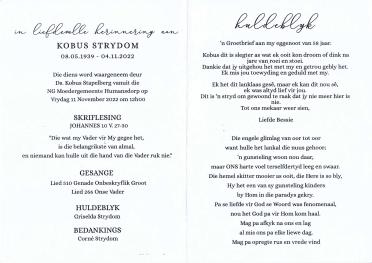 in liefdevolle herinnering aan
KOBUS STRYDOM
08.05.1939 - 04.11.2022
Die diens word waargeneem deur
Ds. Kobus Stapelberg vanuit die
NG Moedergemeente Humansdorp op
Vrydag 11 November 2022 om 12h00
SKRIFLESING
JOHANNES 10 V. 27-30
"Die wat my Vader vir My gegee het,
is die belangrikste van almal,
en niemand kan hulle uit die hand van die Vader ruk nie."
GESANGE
Lied 510 Genade Onbeskryflik Groot
Lied 266 Onse Vader
HULDEBLYK
Griselda Strydom
BEDANKINGS
Corné Strydom
huldeblyk
'n Groetbrief aan my eggenoot van 58 jaar.
Kobus dit is slegter as wat ek ooit kon droom of dink na
jare van rooi en stoei.
Dankie dat jy uitgehou het met my en getrou gebly het.
Ek mis jou toewyding en geduld met my.
Ek het dit lanklaas gesê, maar ek kan dit nou sê,
ek was altyd lief vir jou.
Dit is 'n stryd om gewoond te raak dat jy nie meer hier is
nie.
Tot ons mekaar weer sien,
Liefde Bessie
Die engele glimlag van oor tot oor
want hulle het lankal die nuus gehoor:
'n gunsteling woon nou daar,
maar ONS harte voel terselfdertyd leeg en swaar.
Die hemel skitter mooier as ooit, die Here is so bly,
Hy het een van sy gunsteling kinders
by Hom in die paradys gekry.
Pa se liefde vir God se Woord was fenomenaal,
nou het God pa vir Hom kom haal.
Mag pa afkyk na ons en lag
al mis ons pa elke liewe dag.
Mag pa opregte rus en vrede vind